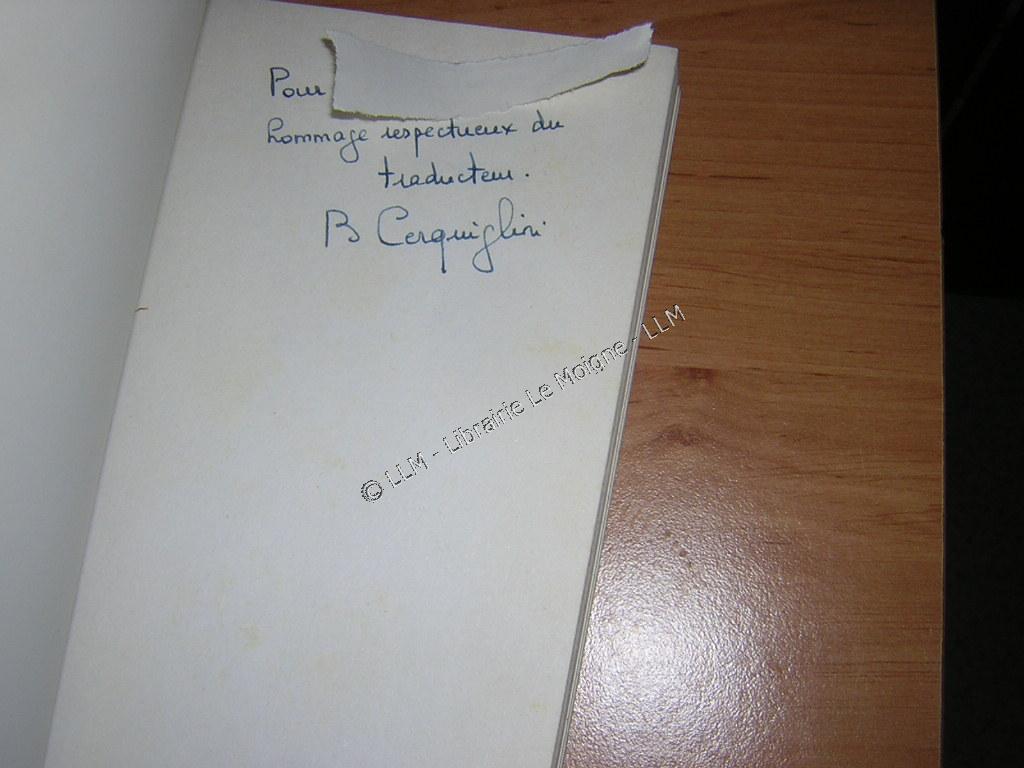 Pour
hommage respectueux du
traducteur.
B Cerquiglini
© LLM - Librairie Le Moigne - LLM